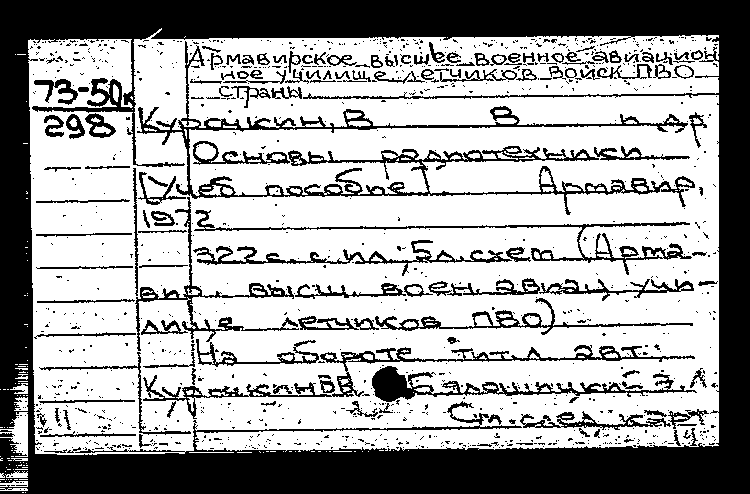 Армавирское высшее военное авиацион
ное училище летчиков Войск ПВО
страны.
73-50к
298
Курочкин, В В и др
Основы радиотехники
[Учеб. пособие]. Армавир,
1972
322с. с ил.; 5л.схем (Арма-
вир. высш. воен. авиац учи-
лище летчиков ПВО).
На обороте тит.л. авт.:
Курочкин В.В. Э.Л.
См. след карт